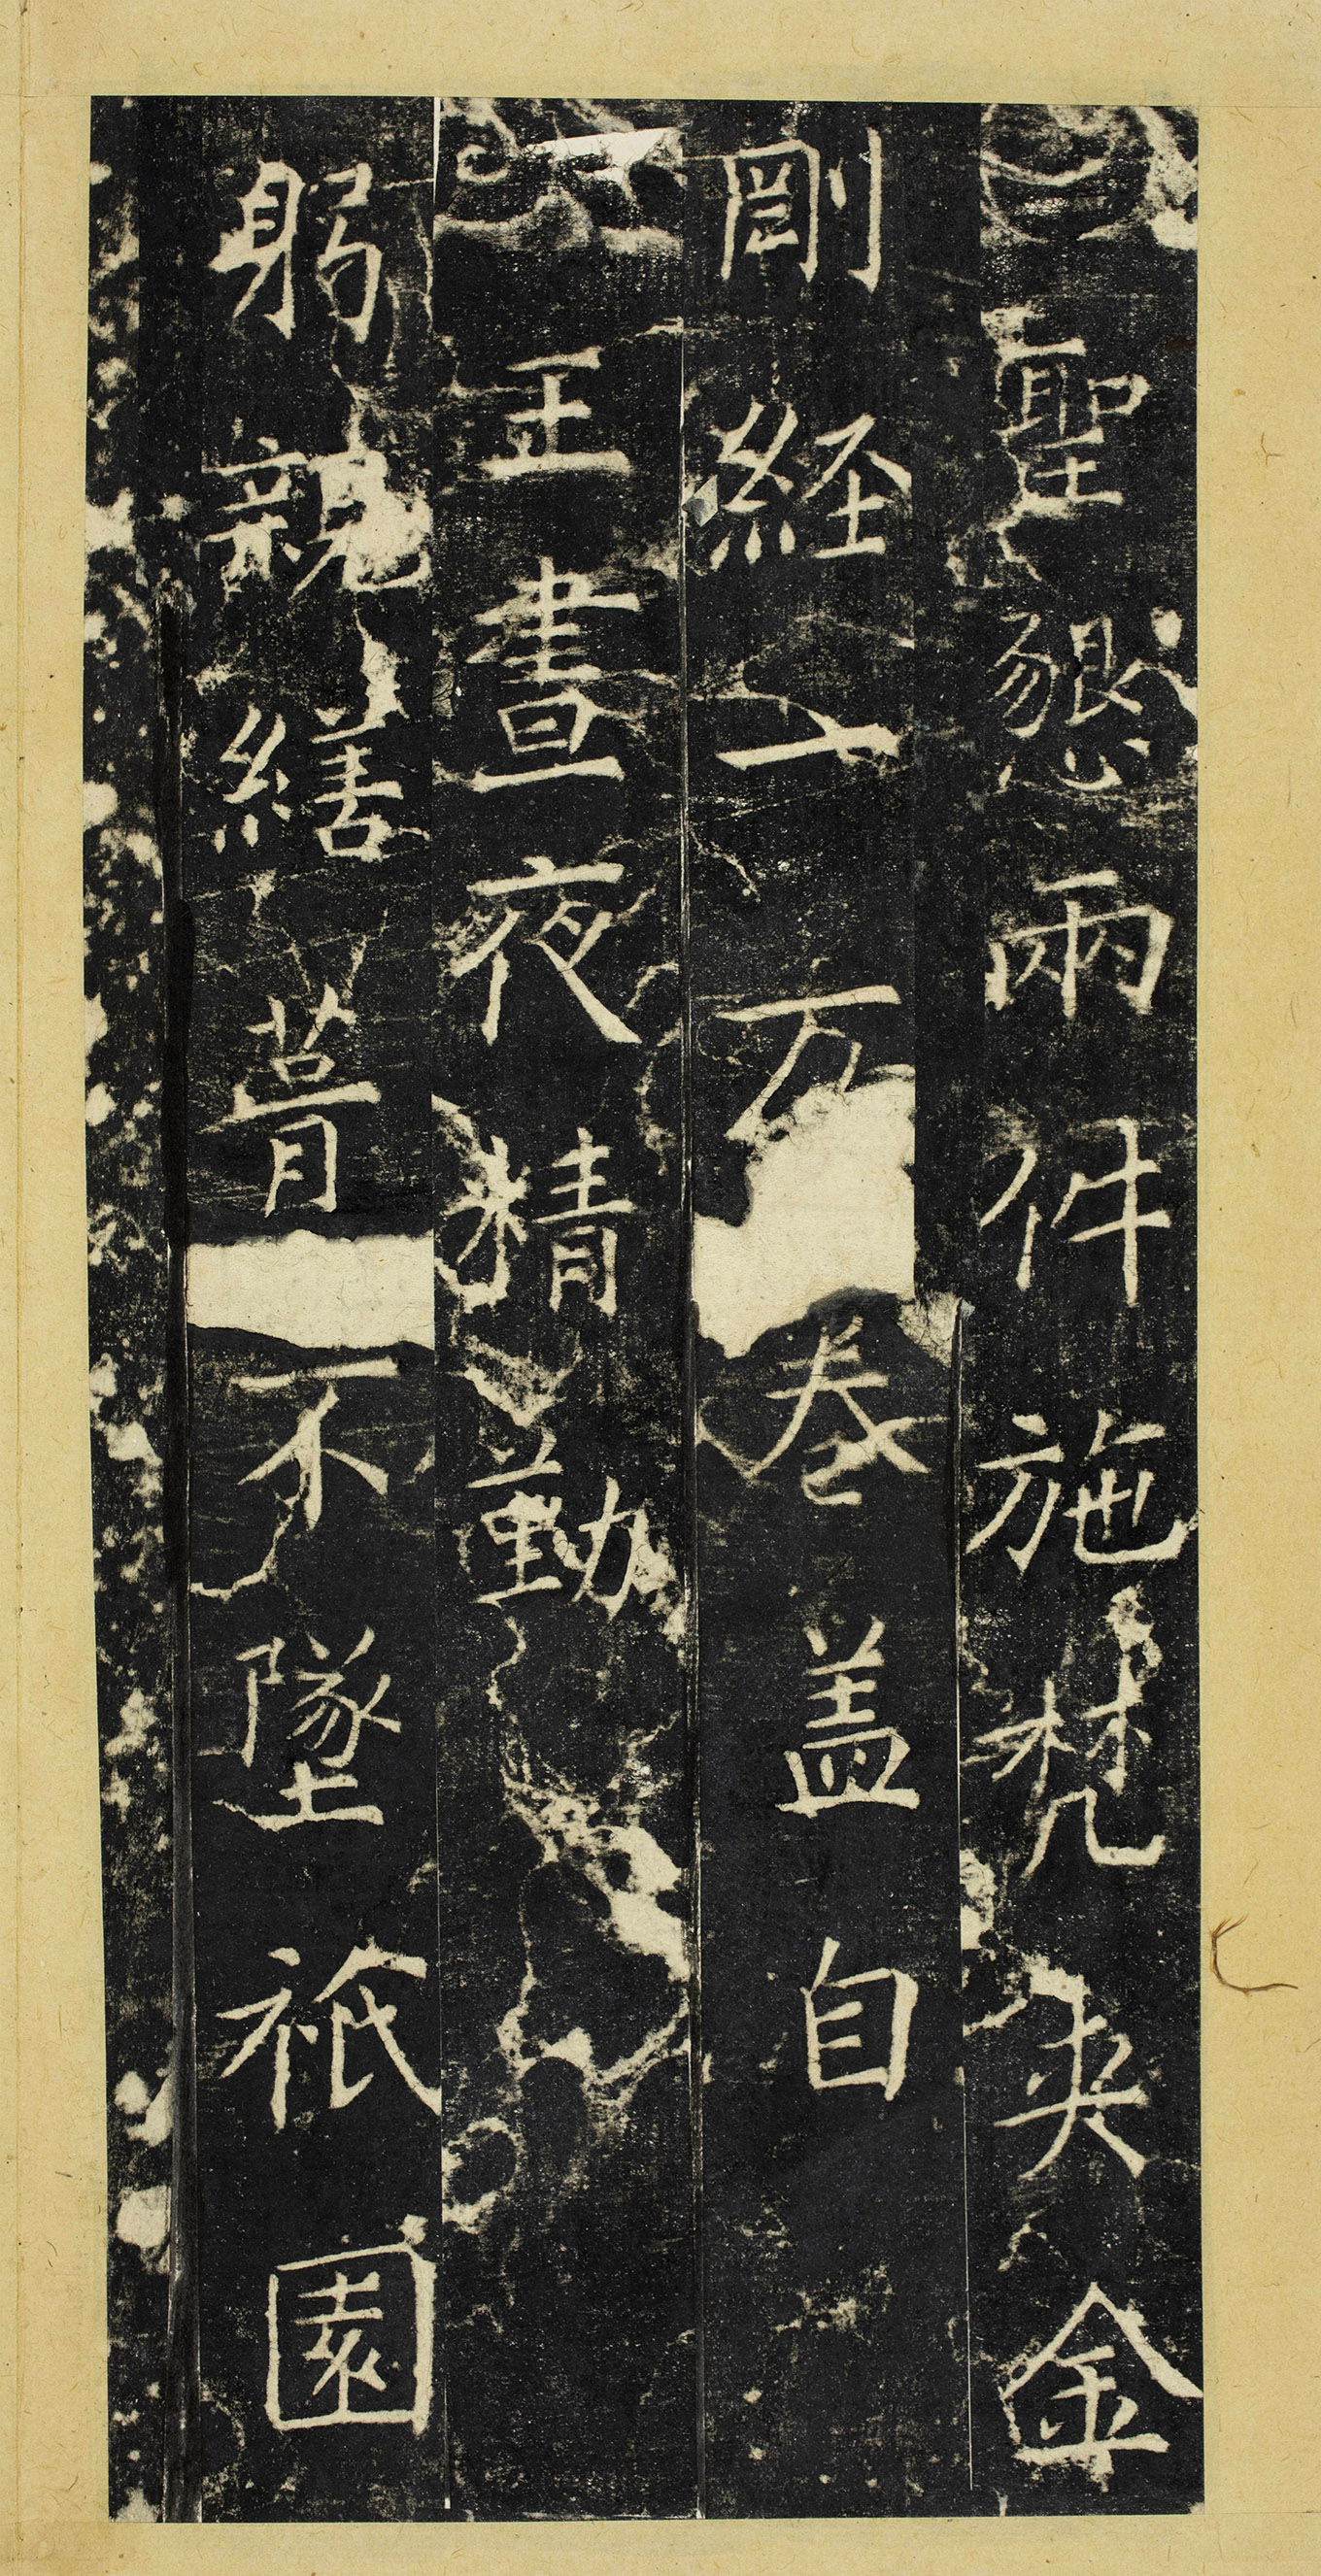 聖懇兩件施梵夾金
剛經一万卷盖自
王晝夜精勤
躬親繕葺不墜祇園